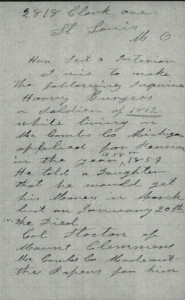 2818 Clark ave
St Louis
M O
Hon Sect of Interior
I wis to make
the following Inquiree
Harvey Burgess
a soldier of 1812
while living in
Mc Combs Co Michigan
applied for Pension
in the year 1858 1859
He told a Daughter
that he would get
his Money in March
but on January 20th
he Died
Col Stocton of
Mount Clemmens
Mc Combs Co Made out
the Papers for him